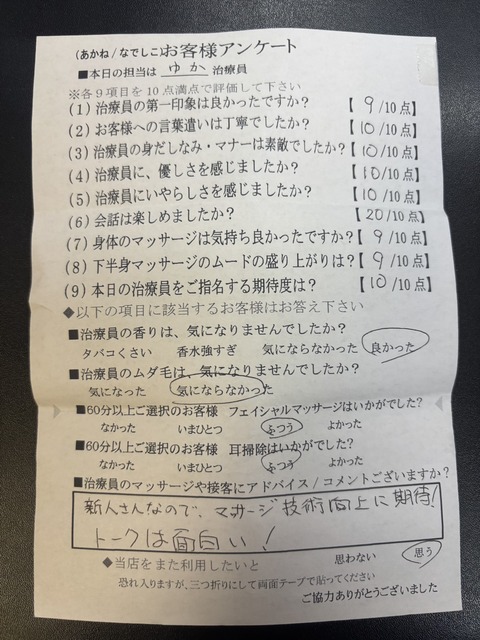 (あかね/なでしこ)お客様アンケート
■本日の担当は ゆか 治療員
※各9項目を10点満点で評価して下さい
(1)治療員の第一印象は良かったですか? 【 9/10点】
(2)お客様への言葉遣いは丁寧でしたか? 【10/10点】
(3)治療員の身だしなみ・マナーは素敵でしたか?【10/10点】
(4)治療員に、優しさを感じましたか? 【10/10点】
(5)治療員にいやらしさを感じましたか? 【10/10点】
(6)会話は楽しめましたか? 【20/10点】
(7)身体のマッサージは気持ち良かったですか?【 9/10点】
(8)下半身マッサージのムードの盛り上がりは?【 9/10点】
(9)本日の治療員をご指名する期待度は? 【10/10点】
◆以下の項目に該当するお客様はお答え下さい
■治療員の香りは、気になりませんでしたか?
タバコくさい 香水強すぎ 気にならなかった 良かった
■治療員のムダ毛は、気になりませんでしたか?
気になった 気にならなかった
■60分以上ご選択のお客様 フェイシャルマッサージはいかがでした?
なかった いまひとつ ふつう よかった
■60分以上ご選択のお客様 耳掃除はいかがでした?
なかった いまひとつ ふつう よかった
■治療員のマッサージや接客にアドバイス/コメントございますか?
新人さんなので、マッサージ技術向上に期待!
トークは面白い!
◆当店をまた利用したいと 思わない 思う
恐れ入りますが、三つ折りにして両面テープで貼ってください
ご協力ありがとうございました